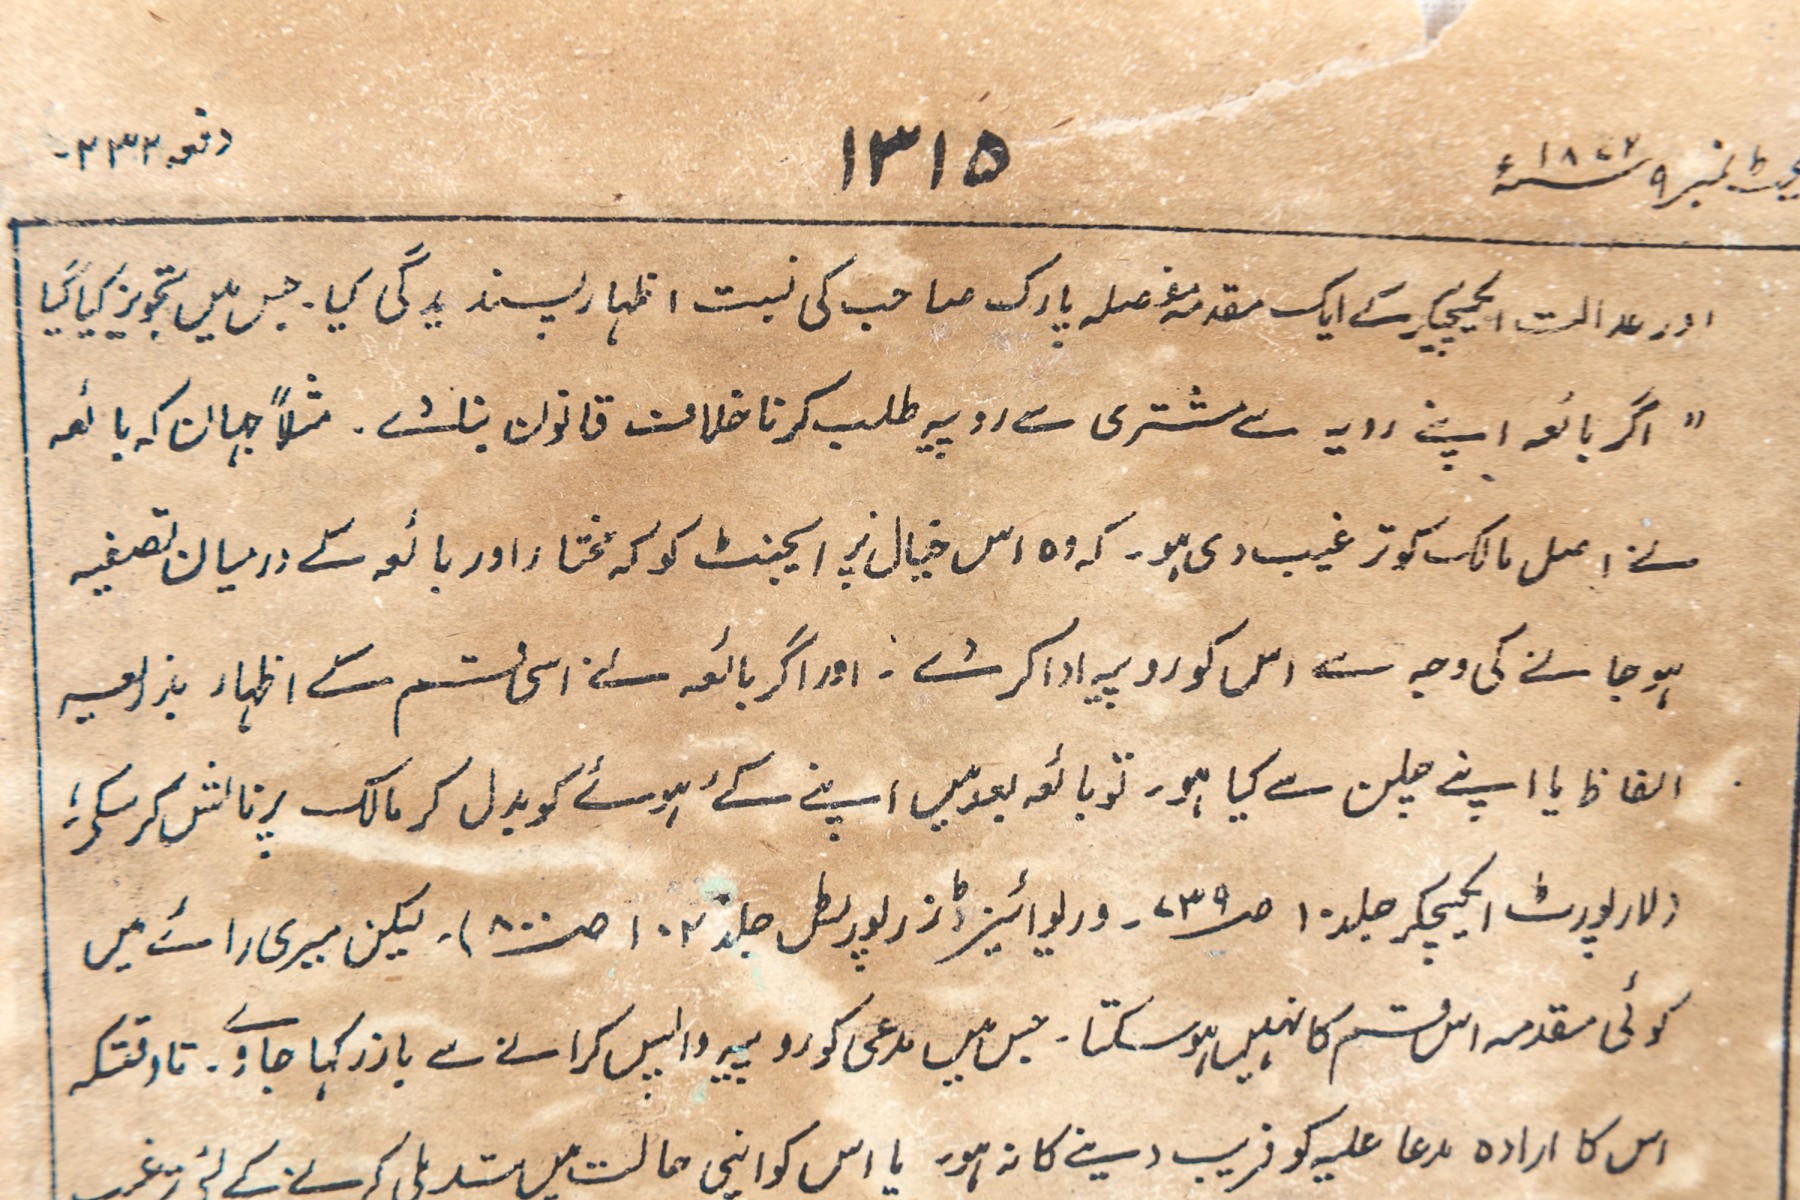 ایکٹ نمبر ۹ سنہ ۱۸۷۲ء ۱۳۱۵ دفعہ ۲۳۲-
اور عدالت ایکسچیکر کے ایک مقدمہ مفصلہ پارک صاحب کی نسبت اظہار پسندیدگی کیا۔ جس میں تجویز کیا گیا
" اگر بائعہ اپنے رویہ سے مشتری سے روپیہ طلب کرنا خلاف قانون بنا دے۔ مثلاً جہان کہ بائعہ
نے اصل مالک کو ترغیب دی ہو۔ کہ وہ اس خیال پر ایجنٹ کو کہ مختار اور بائعہ کے درمیان تصفیہ
ہو جانے کی وجہ سے اس کو روپیہ ادا کر دے۔ اور اگر بائعہ نے اسی قسم کے اظہار بذریعہ
الفاظ یا اپنے چلن سے کیا ہو۔ تو بائعہ بعد میں اپنے کئے ہوئے کو بدل کر مالک پر نالش کر سکے؛
(لارپورٹ ایکسچیکر جلد ۱۰ صہ ۷۳۹۔ و ریوائیزڈ رپورٹس جلد ۱۰۲ صہ ۸۰۰)۔ لیکن میری رائے میں
کوئی مقدمہ اس قسم کا نہیں ہو سکتا۔ جس میں مدعی کو روپیہ واپس کرانے سے باز رکہا جاوے۔ تاوقتیکہ
اس کا ارادہ مدعا علیہ کو فریب دینے کا نہ ہو۔ یا اس کو اپنی حالت میں تبدیلی کرنے کے لئے ترغیب